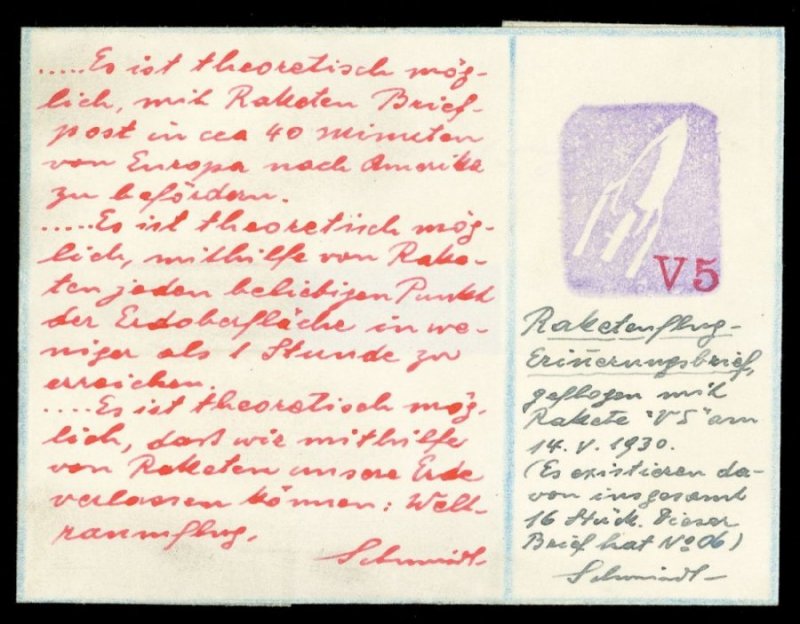 .....Es ist theoretisch mög-
lich, mit Raketen Brief-
post in cca 40 Minuten
von Europa nach Amerika
zu befördern.
.....Es ist theoretisch mög-
lich, mithilfe von Rake-
ten jeden beliebigen Punkt
der Erdoberfläche in we-
niger als 1 Stunde zu
erreichen.
....Es ist theoretisch mög-
lich, daß wir mithilfe
von Raketen unsere Erde
verlassen können: Welt-
raumflug.
Schmidl
V5
Raketenflug-
Erinnerungsbrief,
geflogen mit
Rakete "V5" am
14. V. 1930.
(Es existieren da-
von insgesamt
16 Stück. Dieser
Brief hat No 06)
Schmiedl